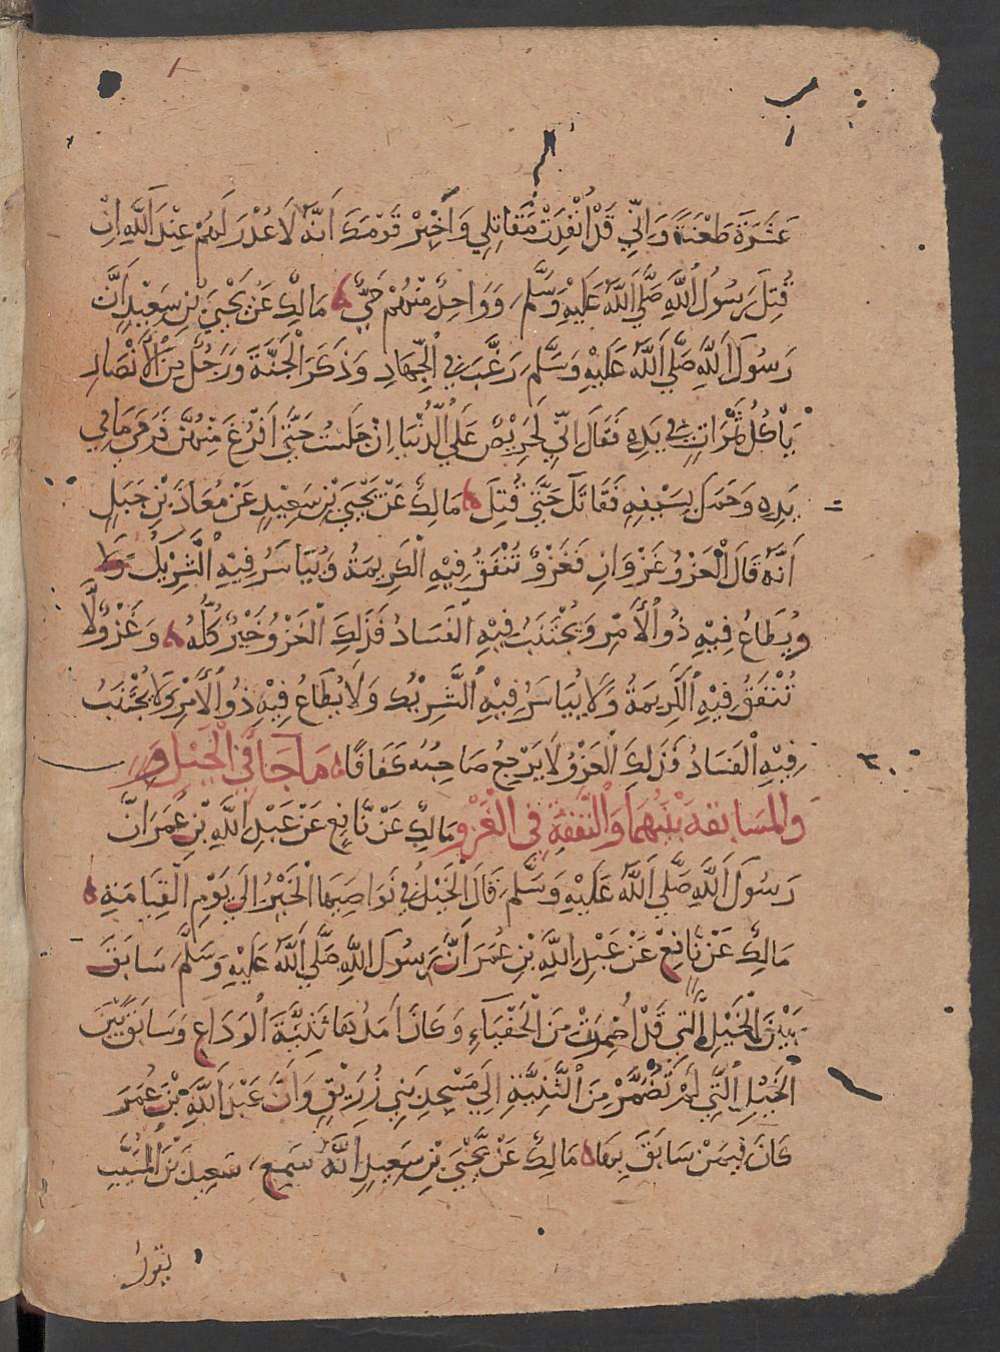 عَشَرَةَ طَعْنَةً وَاِنِّي قَدْ اُنْفِذَتْ مَقَاتِلِي وَاَخْبِرْ قَوْمَكَ اَنَّهُ لَا عُذْرَ لَهُمْ عِنْدَ اللَّهِ اِنْ
قُتِلَ رَسُولُ اللَّهِ صَلَّي اللَّهُ عَلَيْهِ وَسَلَّمَ وَوَاحِدٌ مِنْهُمْ حَيٌّ مَالِكٌ عَنْ يَحْيَيَ بْنِ سَعِيْدٍ اَنَّ
رَسُولَ اللَّهِ صَلَّي اللَّهُ عَلَيْهِ وَسَلَّمَ رَغَّبَ فِي الْجِهَادِ وَذَكَرَ الْجَنَّةَ وَرَجُلٌ مِنَ الْاَنْصَارِ
يَاْكُلُ تَمَرَاتٍ فِي يَدِهِ فَقَالَ اِنِّي لَحَرِيْصٌ عَلَي الدُّنْيَا اِنْ جَلَسْتُ حَتَّي اَفْرُغَ مِنْهُنَّ فَرَمَيَ مَا فِي
يَدِهِ وَحَمَلَ بِسَيْفِهِ فَقَاتَلَ حَتَّي قُتِلَ مَالِكٌ عَنْ يَحْيَيَ بْنِ سَعِيْدٍ عَنْ مُعَاذَ بْنِ جَبَلٍ
اَنَّهُ قَالَ الْغَزْوُ غَزْوَانِ فَغَزْوٌ تُنْفَقُ فِيْهِ الْكَرِيمَةُ وَيُيَاسَرُ فِيْهِ الشَّرِيْكُ وَلَا
وَيُطَاعُ فِيْهِ ذُو الْاَمْرِ وَيُجْتَنَبُ فِيْهِ الْفَسَادُ فَذَلِكَ الْغَزْوُ خَيْرٌ كُلُّهُ وَغَزْوٌ لَا
تُنْفَقُ فِيْهِ الْكَرِيمَةُ وَلَا يُيَاسَرُ فِيْهِ الشَّرِيْكُ وَلَا يُطَاعُ فِيْهِ ذُو الْاَمْرِ وَلَا يُجْتَنَبُ
فِيْهِ الْفَسَادُ فَذَلِكَ الْغَزْوُ لَا يَرْجِعُ صَاحِبُهُ كَفَافًا مَا جَاَ فِي الْخَيْلِ وَ
والمُسَابقة بَيْنَهُمَا وَالنَّفَقَةِ فِي الْغَزْوِ مَالِكٌ عَنْ نَافِعٍ عَنْ عَبْدِ اللَّهِ بْنِ عُمَرَ اَنَّ
رَسُولَ اللَّهِ صَلَّي اللَّهُ عَلَيْهِ وَسَلَّمَ قَالَ الْخَيْلُ فِي نَوَاصِيهَا الْخَيْرُ اِلَي يَوْمِ الْقِيَامَةِ
مَالِكٌ عَنْ نَافِعٍ عَنْ عَبْدِ اللَّهِ بْنِ عُمَرَ اَنَّ رَسُولَ اللَّهِ صَلَّي اللَّهُ عَلَيْهِ وَسَلَّمَ سَابَقَ
بَيْنَ الْخَيْلِ الَّتِي قَدْ اُضْمِرَتْ مِنَ الْحَفْيَاءِ وَكَانَ اَمَدُهَا ثَنِيَّةَ الْوَدَاعِ وَسَابَقَ بَيْنَ
الْخَيْلِ الَّتِي لَمْ تُضَمَّرْ مِنَ الثَّنِيَّةِ اِلَي مَسْجِدِ بَنِي زُرَيْقٍ وَاَنَّ عَبْدَ اللَّهِ بْنَ عُمَرَ
كَانَ فِيمَنْ سَابَقَ بِهَا مَالِكٌ عَنْ يَحْيَيَ بْنِ سَعِيدٍ اَنَّهُ سَمِعَ سَعِيدَ بْنَ الْمُسَيَّبِ
يَقولُ